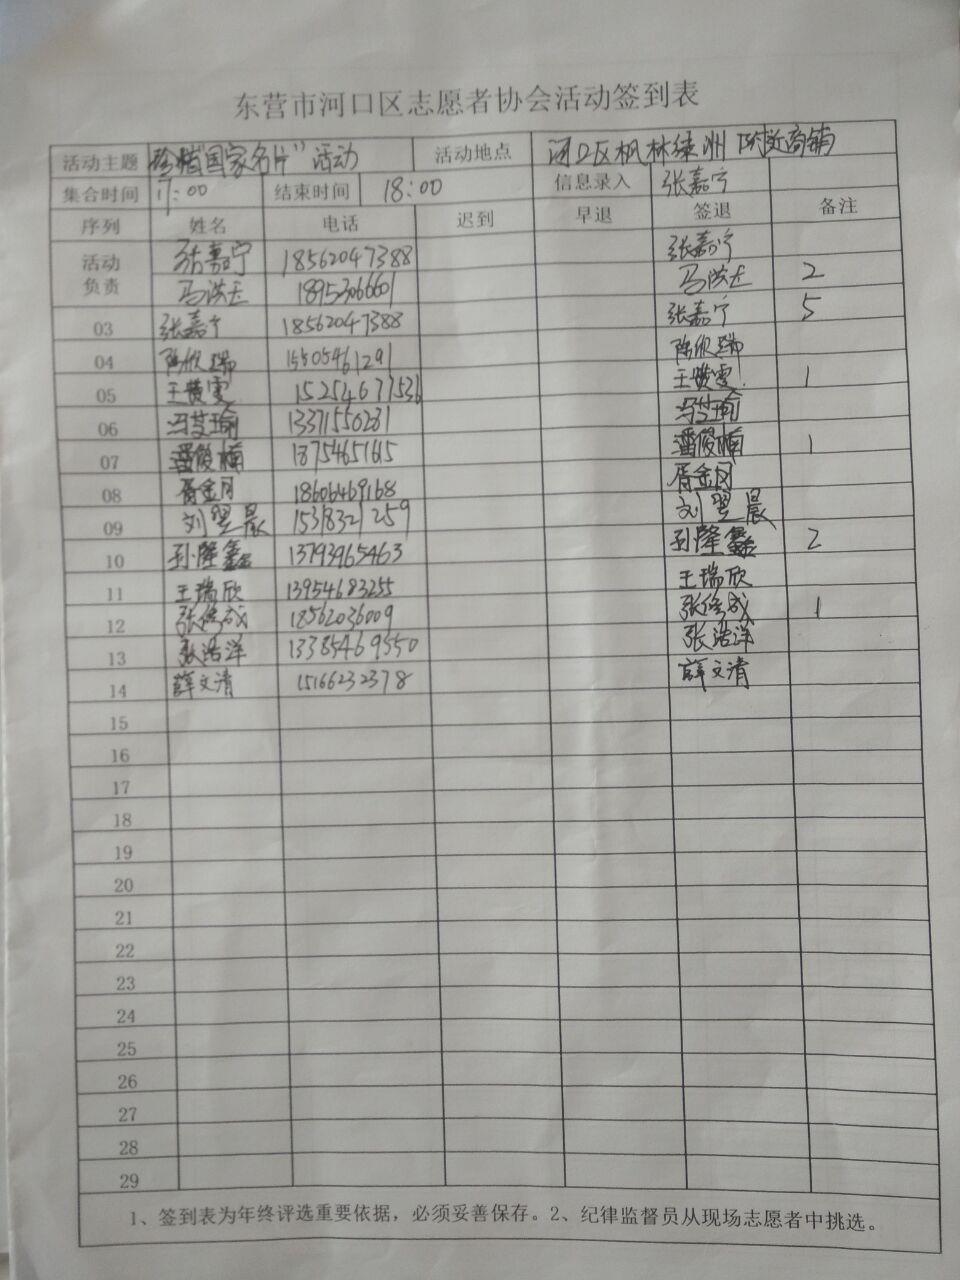 东营市河口区志愿者协会活动签到表
活动主题 珍惜"国家名片"活动 活动地点 河口区枫林绿洲 附近商铺
集合时间 17:00 结束时间 18:00 信息录入 张嘉宁
序列 姓名 电话 迟到 早退 签退 备注
活动负责 张嘉宁 18562047388 张嘉宁
马洪玉 18953066601 马洪玉 2
03 张嘉宁 18562047388 张嘉宁 5
04 陈欣瑞 15505461291 陈欣瑞
05 王赞雯 15254677536 王赞雯 1
06 冯芸瑜 13371550281 冯芸瑜
07 潘俊楠 18754651615 潘俊楠 1
08 胥金月 18606469168 胥金月
09 刘翌晨 15318321259 刘翌晨
10 孙隆鑫 13793965463 孙隆鑫 2
11 王瑞欣 13954683255 王瑞欣
12 张俊成 18562036009 张俊成 1
13 张浩洋 13385469550 张浩洋
14 薛文清 15166232378 薛文清
15
16
17
18
19
20
21
22
23
24
25
26
27
28
29
1、签到表为年终评选重要依据，必须妥善保存。2、纪律监督员从现场志愿者中挑选。